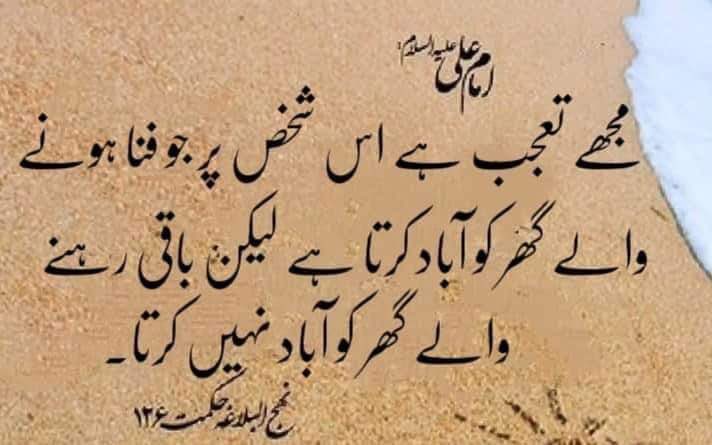 امام علی علیہ السلام:
مجھے تعجب ہے اس شخص پر جو فنا ہونے
والے گھر کو آباد کرتا ہے لیکن باقی رہنے
والے گھر کو آباد نہیں کرتا۔
نہج البلاغہ حکمت ۱۲۶